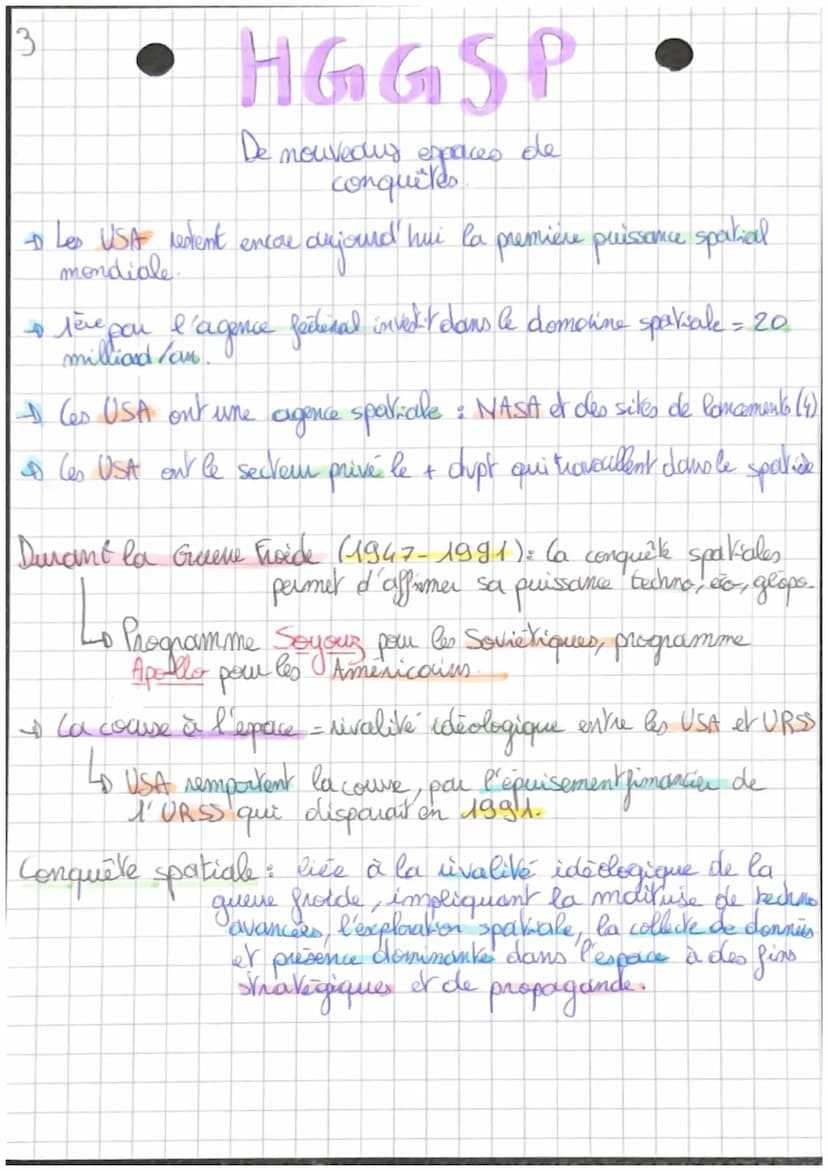 3
HGGSP
De nouveaux espaces de
conquêtes.
→ Les USA restent encore aujourd'hui la première puissance spatial
mondiale.
→ 1ère par l'agence fédéral invest dans le domaine spatiale = 20
milliard/an.
→ Les USA ont une agence spatiale : NASA et des sites de lancements (4)
→ Les USA ont le secteur privé le + dvpt qui travaillent dans le spatiale
Durant la Guerre Froide (1947-1991) : la conquête spatiales
permet d'affirmer sa puissance techno, éco, géopo.
↳ Programme Soyouz pour les Soviétiques, programme
Apollo pour les Américains.
→ La course à l'espace = rivalité idéologique entre les USA et URSS
↳ USA remportent la course, par l'épuisement financier de
l'URSS qui disparait en 1991.
Conquête spatiale : liée à la rivalité idéologique de la
guerre froide, impliquant la maitrise de techno
avancées, l'exploration spatiale, la collecte de données
et présence dominante dans l'espace à des fins
stratégiques et de propagande.